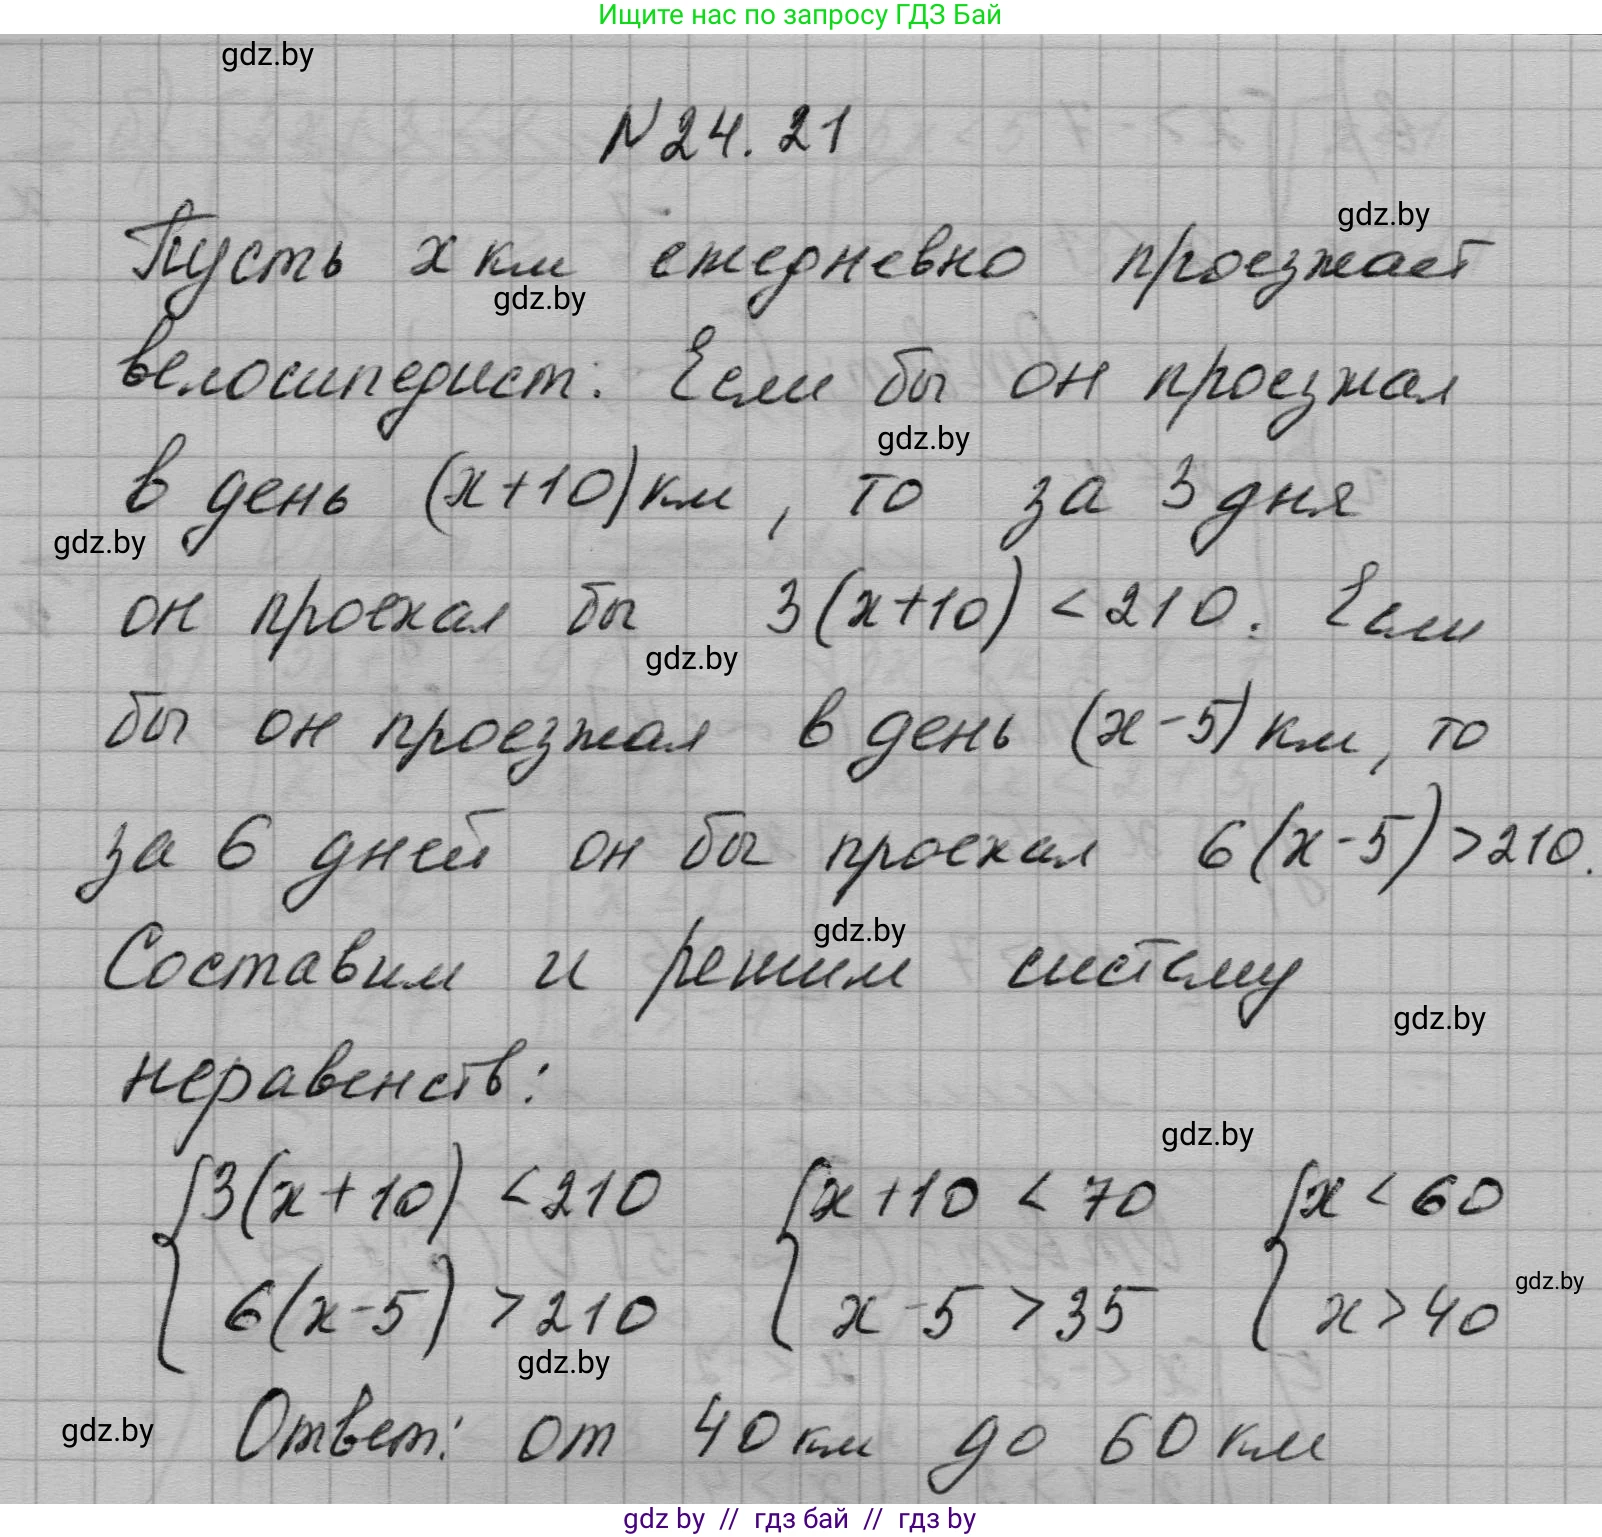 Ищите нас по запросу ГДЗ Бай
gdz.by
N 24.21
gdz.by
Пусть x км ежедневно проезжает
gdz.by
велосипедист. Если бы он проезжал
gdz.by
в день (x+10) км, то за 3 дня
gdz.by
он проехал бы 3(x+10) <210. Если
gdz.by
бы он проезжал в день (x-5) км, то
за 6 дней он бы проехал 6(x-5)>210.
gdz.by
Составим и решим систему
gdz.by
неравенств:
gdz.by
{3(x+10) <210 {x+10 < 70 {x < 60
6(x-5) >210 x-5 >35 x>40
gdz.by
gdz.by
gdz.by
Ответ: от 40 км до 60 км
gdz by // гдз бай // гдз by